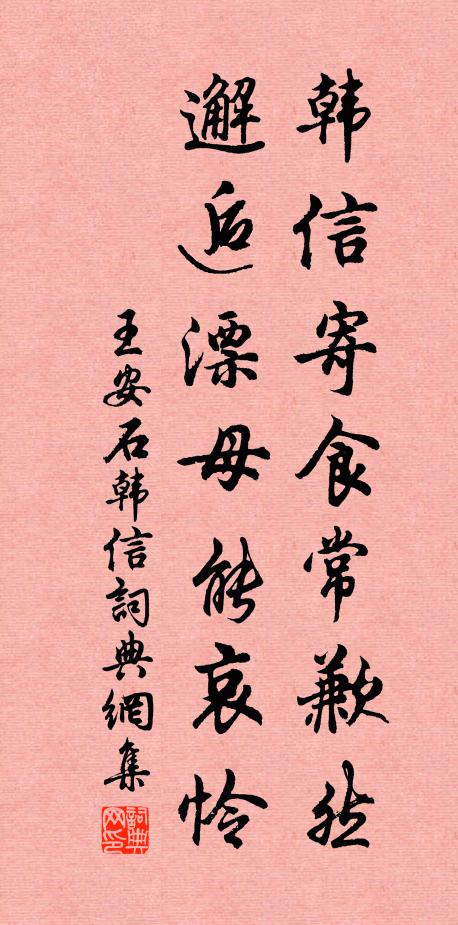 韩信寄食常歉然
邂逅漂母能哀怜
王安石韩信詞典網集
詞典网印